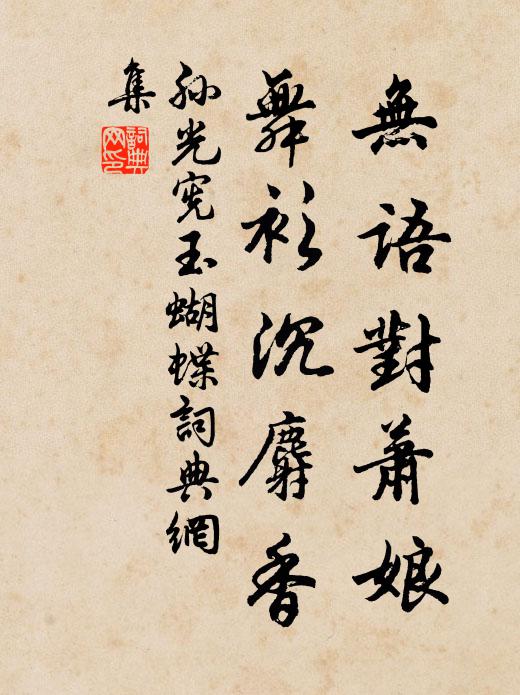 無語對蕭娘
舞衫沉麝香
孫光憲玉蝴蝶詞典網
集
詞典
网印